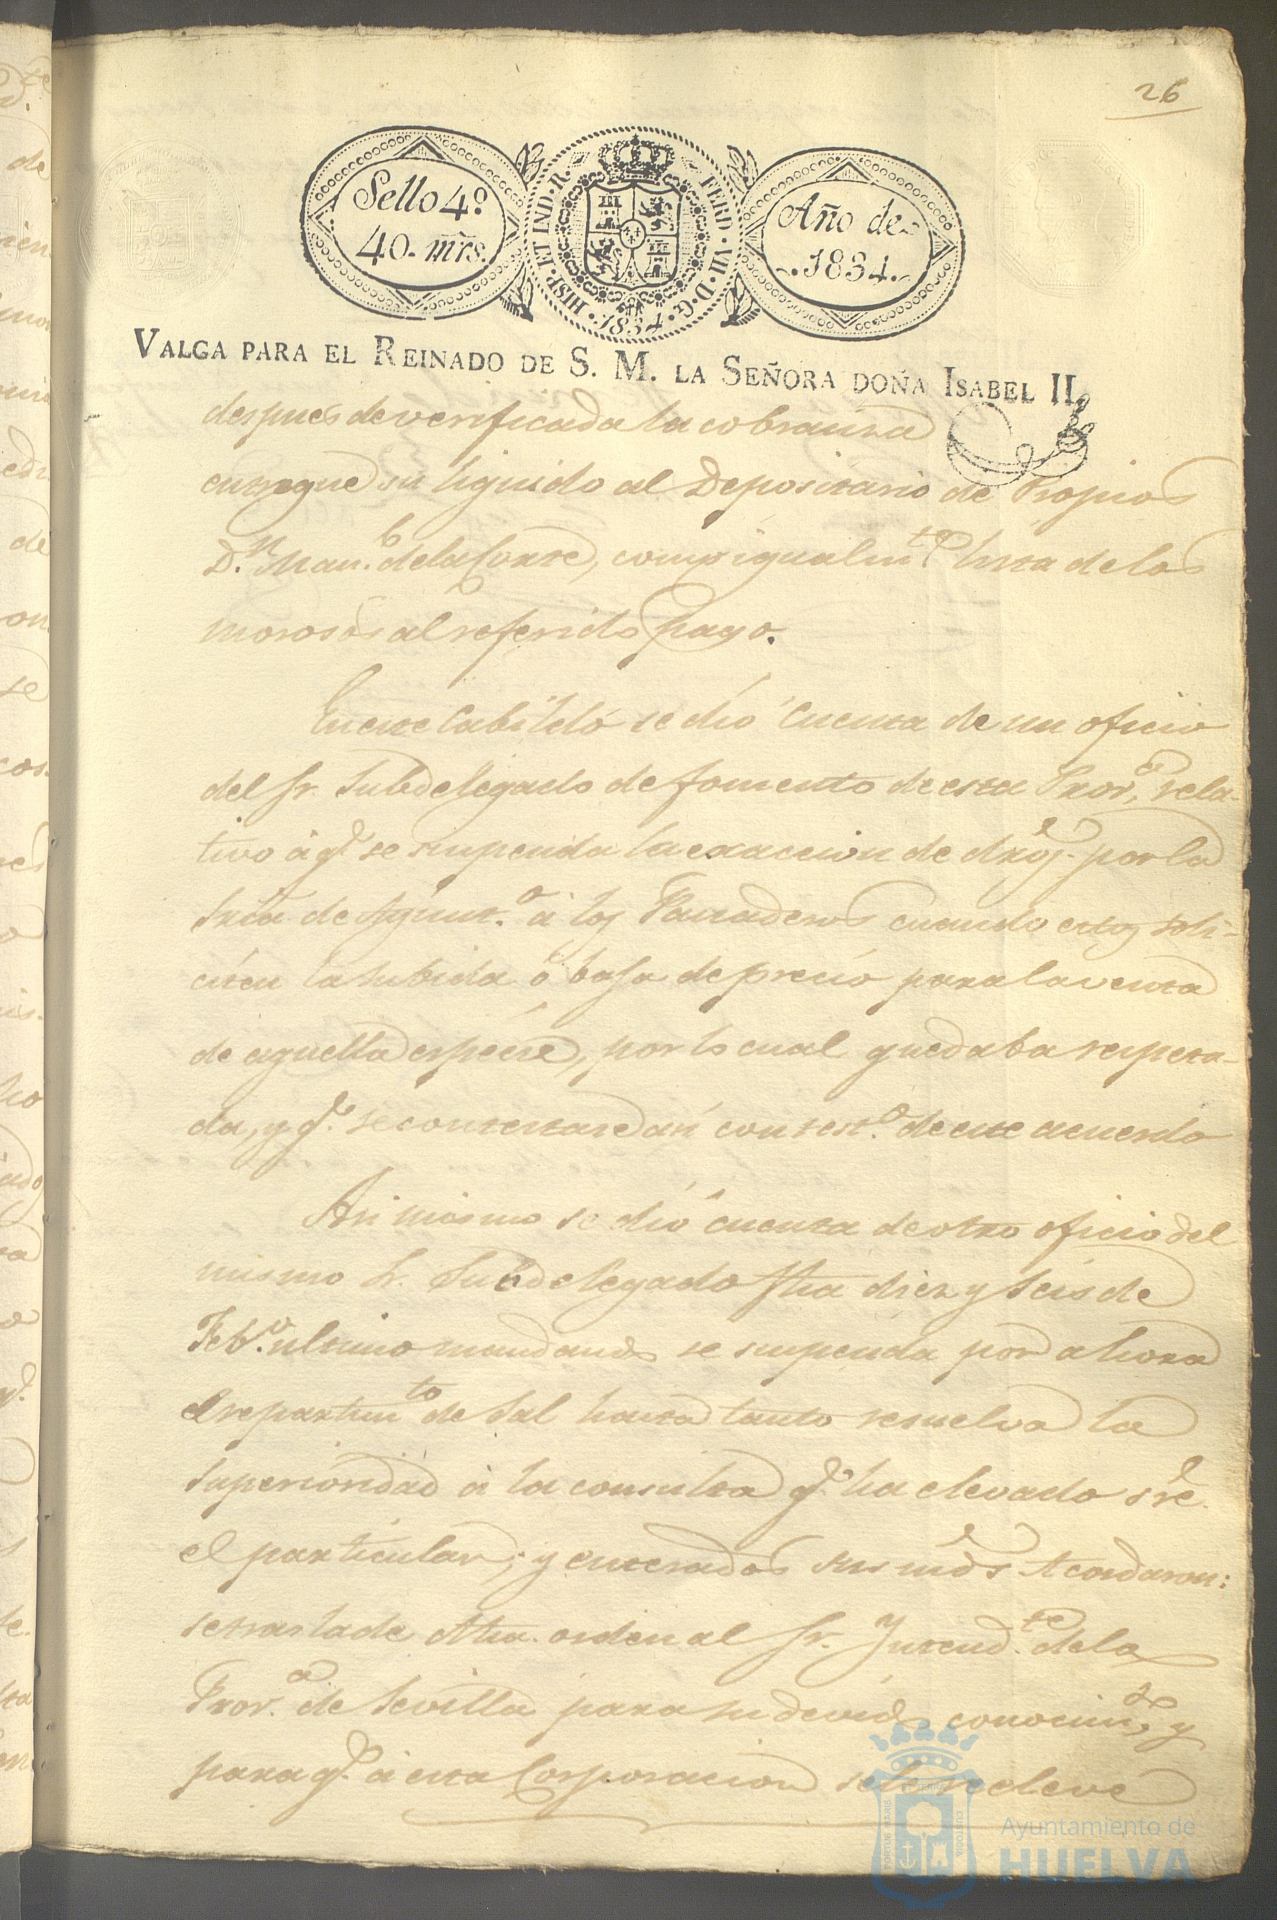 26
Sello 4º.
40. mrs.
HISP. ET IND. R.
FERD. VII. D. G.
1834
Año de
1834.
VALGA PARA EL REINADO DE S. M. LA SEÑORA DOÑA ISABEL II.
despues de verificada la cobranza
entregue su liquido al Depositario de Propios
D.n Man.l de la Corte, como igualm.te lista de los
morosos al referido pago.
En este Cabildo se dió cuenta de un oficio
del Sr. Subdelegado de fomento de esta Prov.a rela-
tivo á q.e se suspenda la exaccion de dros. por la
Sria de Ayunt.o á los Panaderos cuando estos soli-
citen la subida ó baja de precio para la venta
de aquella especie, por lo cual quedaba respeta-
da, y q.e se contestará con test.o de este acuerdo
Asi mismo se dió cuenta de otro oficio del
mismo Sr. Subdelegado fha diez y seis de
Feb.o ultimo mandando se suspenda por ahora
el repartim.to de Sal hasta tanto resuelva la
Superioridad á la consulta q.e ha elevado sre.
el particular; y enterados sus mds. Acordaron:
se traslade dha. orden al Sr. Yntend.te de la
Prov.a de Sevilla para su devido conocim.to y
para q.e á esta Corporacion se le releve
PORTUS MARIS
CUSTODIA
Ayuntamiento de
HUELVA